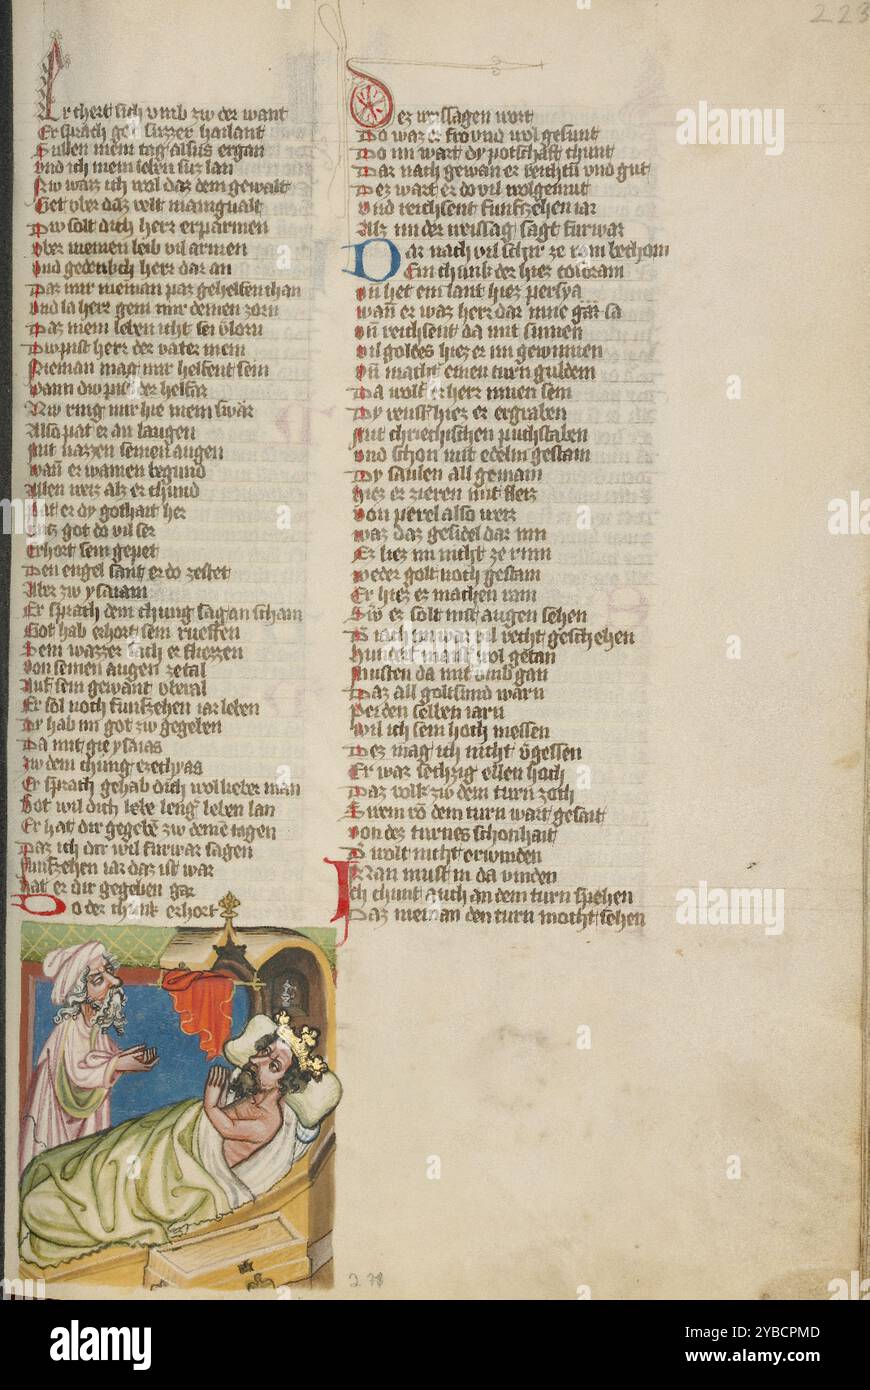 223
Er chert sich vmb zw der want
Er sprach got suzzer hailant
Sullen mein tag alsus ergan
vnd ich mein leben sus lan
Nw waiz ich wol daz dem gewalt
Get vber daz velt manigualt
Dw solt dich herr erparmen
vber meinen leib vil armen
vnd gedenkch herr dar an
Daz mir nieman par gehelfen chan
vnd la herr gein mir deinen zorn
Daz mein leben icht sei v̈lorn
Dw pist herr der vater mein
Nieman mag mir helfent sein
wann dw pist der helfär
Nw ring mir hie mein swär
Also pat er an laugen
Mit nazzen seinen augen
wan̄ er wainen begund
Allen weiz als er chund
pat er dy gothait her
vntz got do vil ser
Erhort sein gepet
Den engel sant er do zestet
Aber zw ysaiam
Er sprach dem chung sag an scham
Got hab erhort sein rueffen
Sein wazzer sach er fliezzen
von seinen augen zetal
Auf sein gewant vberal
Er sol noch funfzehen iar leben
Dy hab im got zw gegeben
Da mit gie ysaias
zw dem chung ezechyas
Er sprach gehab dich wol lieber man
Got wil dich lebe leng̾ leben lan
Er hat dir gegebē zw deinē tagen
Daz ich dir wil furwar sagen
funfzehen iar daz ist war
hat er dir gegeben gar
Do der chunk erhort
Dez weissagen wort
Do waz er fro vnd wol gesunt
Do im wart dy potschaft chunt
Dar nach gewan er reichtū vnd gut
Dez wart er do vil wolgemut
vnd reichsent funfzehen iar
Alz im der weissag sagt furwar
Dar nach vil schir ze rom bechom
Ein chunk der hiez cosdram
vn̄ het ein lant hiez persya
wan̄ er waz herr dar inne gär sa
vn̄ reichsent da mit sinnen
vil goldes hiez er im gewinnen
vn̄ macht einen turn guldein
Da wolt er herr innen sein
Dy venst hiez er ergraben
Mit chriechischen puchstaben
vnd schon mit edelm gestain
Dy saulen all gemain
Hiez er zieren mit fleiz
von perel also weiz
waz daz gesidel dar inn
Er liez im nicht ze rinn
weder golt noch gestain
Er hiez er machen ram
Sw̄ er solt mit augen sehen
D nach im waz vil recht geschehen
Hundert mann wol getan
Musten da mit vmb gan
Daz all goltsmid warn
Pei den selben iarn
wil ich sein hoch messen
Dez mag ich nicht v̄gessen
Er war sechzig ellen hoch
Daz volk zw dem turn zoch
Swem vō dem turn wart gesait
von dez turnes schonhait
D wolt nicht erwinden
Man must in da vinden
Ich chunt auch an dem turn spehen
Daz nieman den turn mocht sehen
alamy
a
Image ID: 2YBCPMD
www.alamy.com